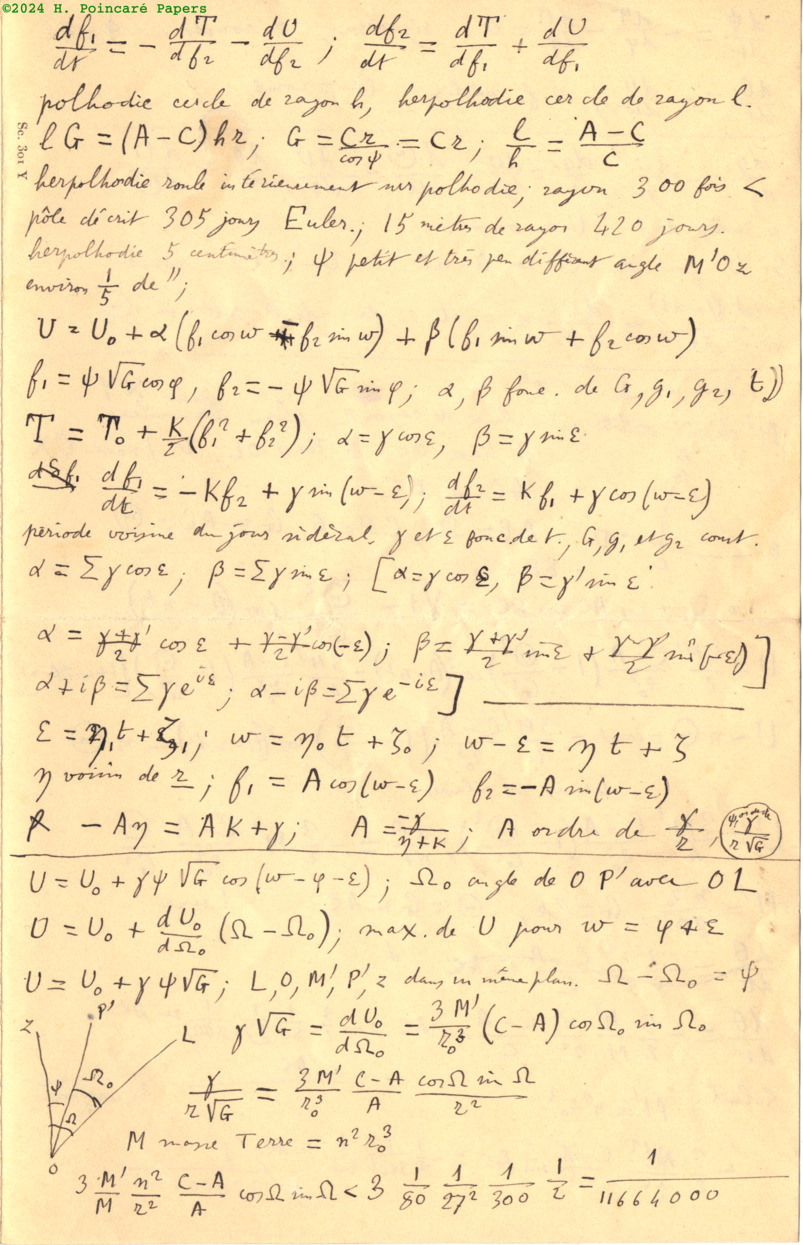 ©2024 H. Poincaré Papers
df₁/dt = - dT/df₂ - dU/df₂ ; df₂/dt = dT/df₁ + dU/df₁
polhodie cercle de rayon h, herpolhodie cercle de rayon l.
Sc. 301 Y
l G = (A - C) h r ; G = Cr/cos ψ = C r ; l/h = A - C/C
herpolhodie roule intérieurement sur polhodie ; rayon 300 fois <
pôle décrit 305 jours Euler. ; 15 mètres de rayon 420 jours.
herpolhodie 5 centimètres ; ψ petit et très peu différant angle M'Oz
environ 1/5 de " ;
U = U₀ + α (f₁ cos w - f₂ sin w) + β (f₁ sin w + f₂ cos w)
f₁ = ψ √G cos φ, f₂ = - ψ √G sin φ ; α, β fonc. de G, g₁, g₂, t))
T = T₀ + K/2 (f₁² + f₂²) ; α = γ cos ε, β = γ sin ε
df₁/dt = - K f₂ + γ sin (w - ε) ; df₂/dt = K f₁ + γ cos (w - ε)
période voisine du jour sidéral, γ et ε fonc. de t., G, g₁ et g₂ const.
α = Σ γ cos ε ; β = Σ γ sin ε ; [ α = γ cos ε, β = γ' sin ε
α = γ+γ'/2 cos ε + γ-γ'/2 cos(-ε) ; β = γ+γ'/2 sin ε + γ-γ'/2 sin (-ε) ]
α + iβ = Σ γ e^{iε} ; α - iβ = Σ γ e^{-iε} ]
ε = η₁ t + ζ₁ ; w = η₀ t + ζ₀ ; w - ε = η t + ζ
η voisin de r ; f₁ = A cos (w - ε) f₂ = - A sin (w - ε)
- A η = A K + γ ; A = -γ/η+K ; A ordre de γ/r, ψ, ordre de γ/r√G
U = U₀ + γ ψ √G cos (w - φ - ε) ; Ω₀ angle de O P' avec O L
U = U₀ + dU₀/dΩ₀ (Ω - Ω₀) ; max. de U pour w = φ + ε
U = U₀ + γ ψ √G ; L, O, M', P', z dans un même plan. Ω - Ω₀ = ψ
z P' L ψ Ω₀ Ω O
γ √G = dU₀/dΩ₀ = 3 M'/r₀³ (C - A) cos Ω₀ sin Ω₀
γ/r√G = 3 M'/r₀³ C - A/A cos Ω sin Ω/r²
M masse Terre = n² r₀³
3 M'/M n²/r² C - A/A cos Ω sin Ω < 3 1/80 1/27² 1/300 1/2 = 1/11664000